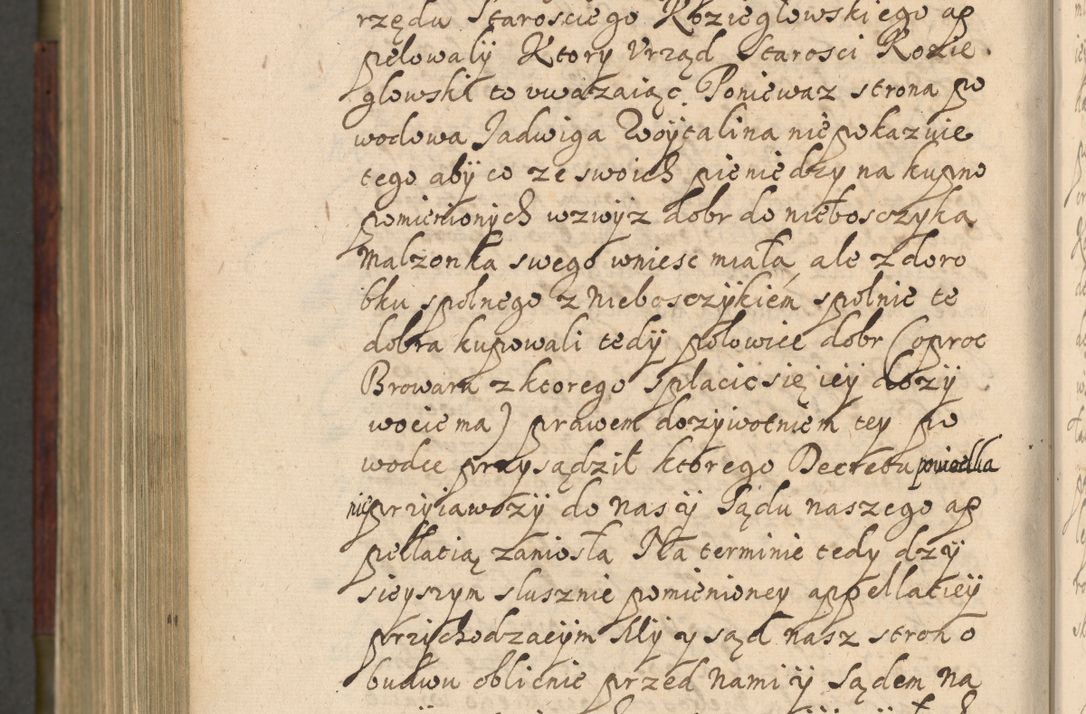 rzędu Starosciego Kozieglowskiego ap
pelowaly Ktory Vrząd Starosci Kozie
glowski to vwazaiąc Poniewaz strona po
wodowa Jadwiga Woÿtalina nie pokazuie
tego abÿ co ze swoich pieniedzy na kupno
pomienionÿch wzwÿz dobr do nieboscżyka
Malzonka swego wniesc miała, ale z doro
bku spolnego z Nieboscżykiem spolnie te
dobra kupowali tedÿ polowice dobr (oproc
Browaru z ktorego splacic się ieÿ dożÿ
wocie ma) prawem dożÿwotniem tey po
wodce przysądził ktorego Decretu powodka
nie przÿiawszÿ do nas ÿ Sądu naszego ap
pellatią zaniosła Na terminie tedy dzÿ
sieÿszym slusznie pomienioney appellatieÿ
przÿchodzacÿm Mÿ y sąd nasz stron o
budwu oblicnie przed nami ÿ Sądem na